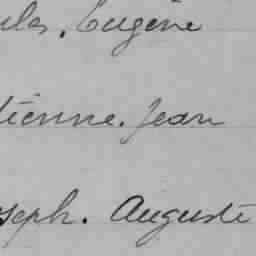 ules. Eugène
tienne. Jean
oseph. Auguste